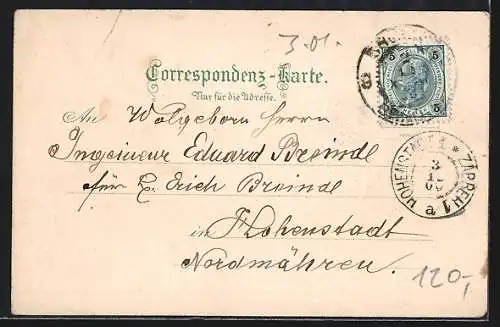 3.01.
Correspondenz-Karte.
Nur für die Adresse.
An Wolgeborn Herrn
Ingenieur Eduard Breindl
für Erich Breindl
in Hohenstadt
Nordmähren.
5 5
5 5
3
a 1
120,-